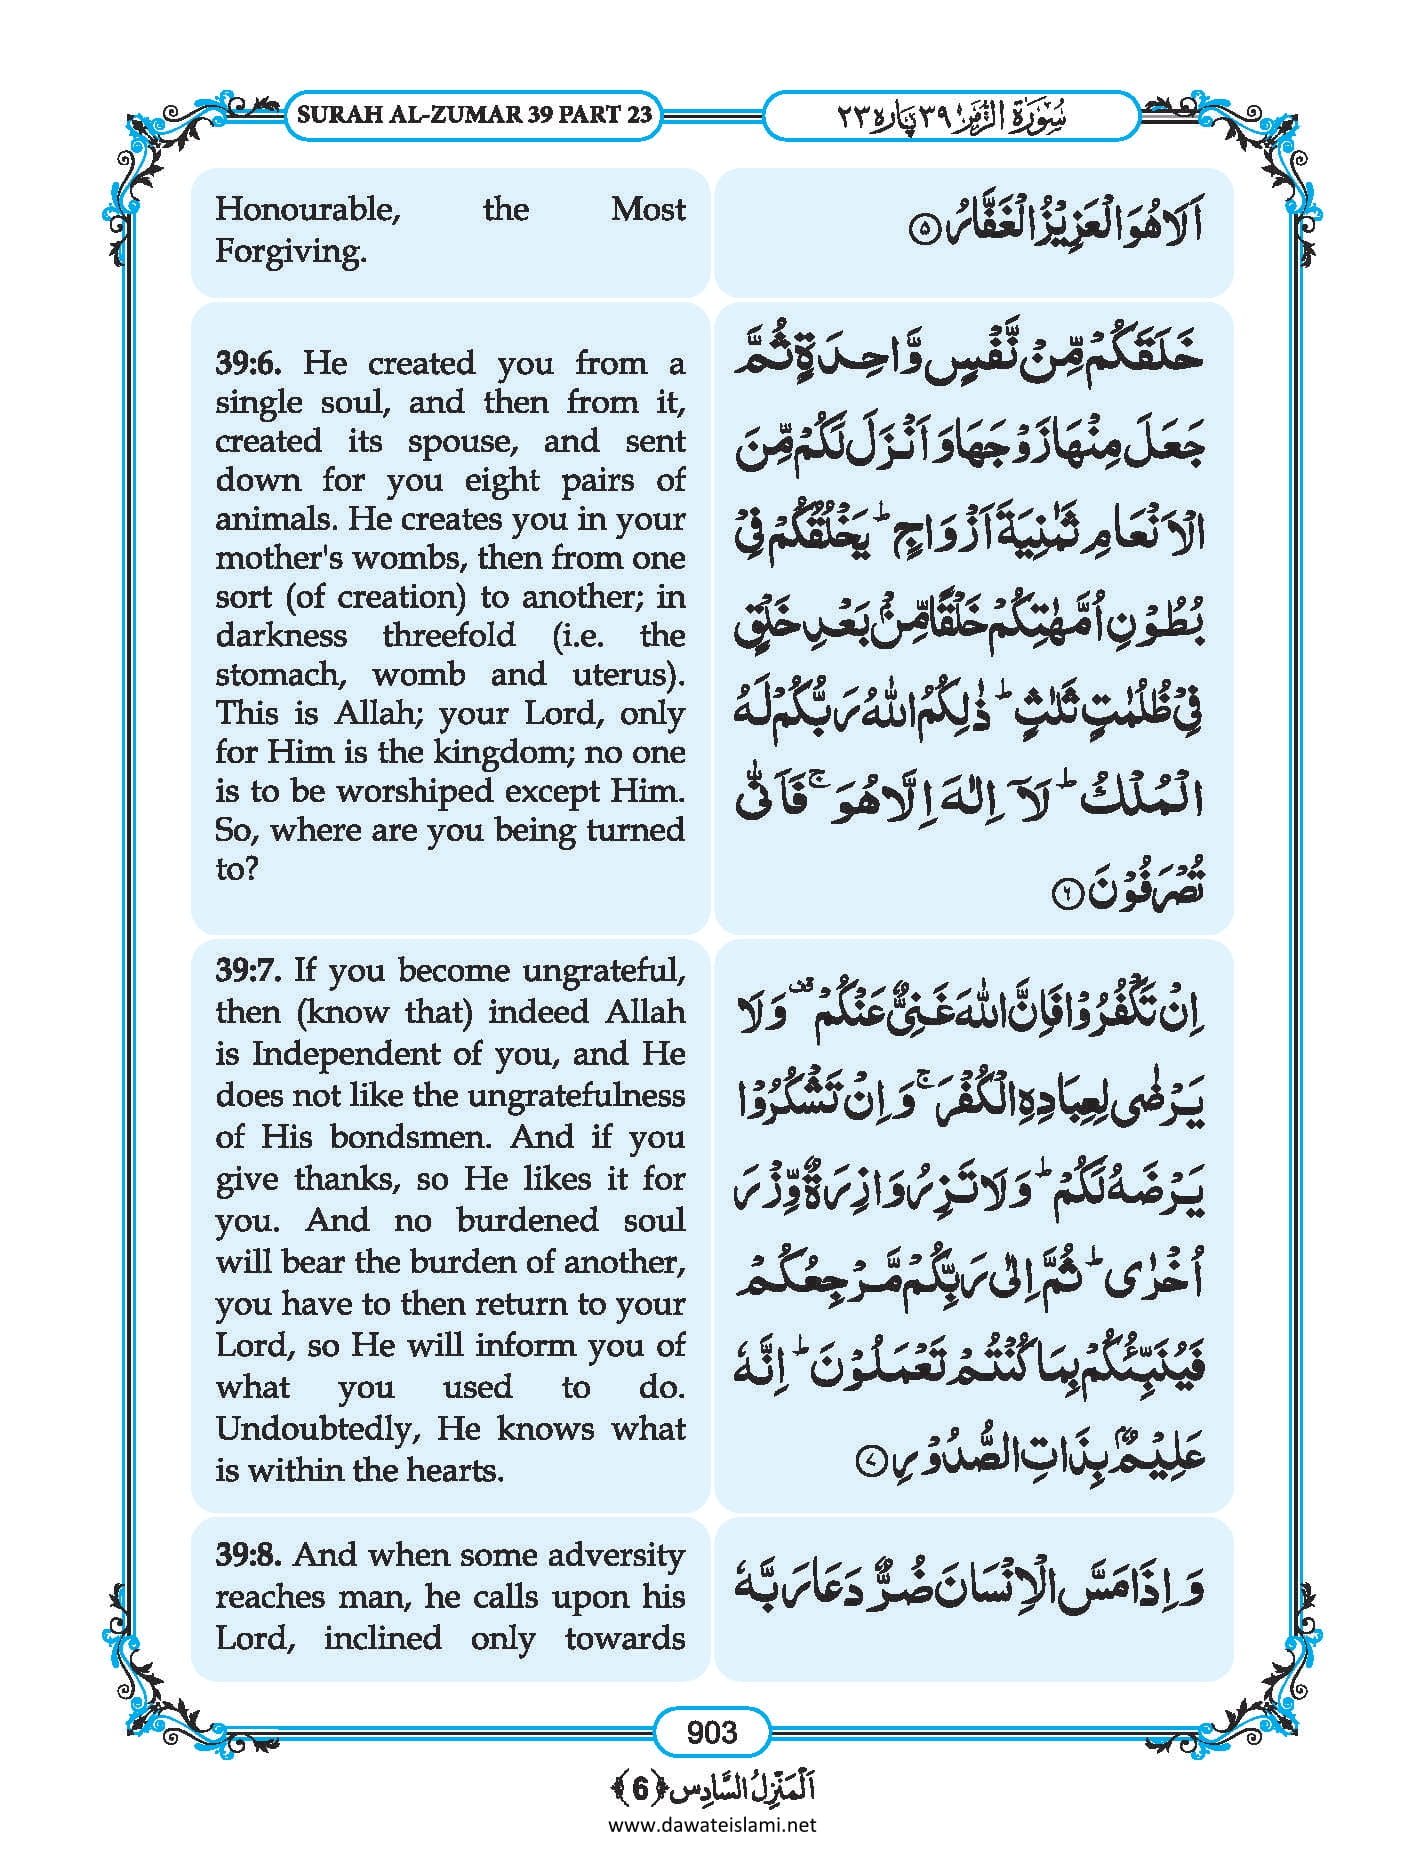 SURAH AL-ZUMAR 39 PART 23
سُوۡرَۃُ الزُّمَر ۳۹ پارہ ۲۳
Honourable, the Most
Forgiving.
اَلَا هُوَ الْعَزِیْزُ الْغَفَّارُ ۵
39:6. He created you from a
single soul, and then from it,
created its spouse, and sent
down for you eight pairs of
animals. He creates you in your
mother's wombs, then from one
sort (of creation) to another; in
darkness threefold (i.e. the
stomach, womb and uterus).
This is Allah; your Lord, only
for Him is the kingdom; no one
is to be worshiped except Him.
So, where are you being turned
to?
خَلَقَكُمْ مِّنْ نَّفْسٍ وَّاحِدَةٍ ثُمَّ
جَعَلَ مِنْهَا زَوْجَهَا وَ اَنْزَلَ لَكُمْ مِّنَ
الْاَنْعَامِ ثَمٰنِیَةَ اَزْوَاجٍؕ یَخْلُقُكُمْ فِیْ
بُطُوْنِ اُمَّهٰتِكُمْ خَلْقًا مِّنْۢ بَعْدِ خَلْقٍ
فِیْ ظُلُمٰتٍ ثَلٰثٍؕ ذٰلِكُمُ اللّٰهُ رَبُّكُمْ لَهُ
الْمُلْكُؕ لَاۤ اِلٰهَ اِلَّا هُوَۚ فَاَنّٰى
تُصْرَفُوْنَ ۶
39:7. If you become ungrateful,
then (know that) indeed Allah
is Independent of you, and He
does not like the ungratefulness
of His bondsmen. And if you
give thanks, so He likes it for
you. And no burdened soul
will bear the burden of another,
you have to then return to your
Lord, so He will inform you of
what you used to do.
Undoubtedly, He knows what
is within the hearts.
اِنْ تَكْفُرُوْا فَاِنَّ اللّٰهَ غَنِیٌّ عَنْكُمْ۫ وَ لَا
یَرْضٰى لِعِبَادِهِ الْكُفْرَۚ وَ اِنْ تَشْكُرُوْا
یَرْضَهُ لَكُمْؕ وَ لَا تَزِرُ وَازِرَةٌ وِّزْرَ
اُخْرٰىؕ ثُمَّ اِلٰى رَبِّكُمْ مَّرْجِعُكُمْ
فَیُنَبِّئُكُمْ بِمَا كُنْتُمْ تَعْمَلُوْنَؕ اِنَّهٗ
عَلِیْمٌۢ بِذَاتِ الصُّدُوْرِ ۷
39:8. And when some adversity
reaches man, he calls upon his
Lord, inclined only towards
وَ اِذَا مَسَّ الْاِنْسَانَ ضُرٌّ دَعَا رَبَّهٗ
903
اَلْمَنْزِلُ السَّادِس ﴿6﴾
www.dawateislami.net